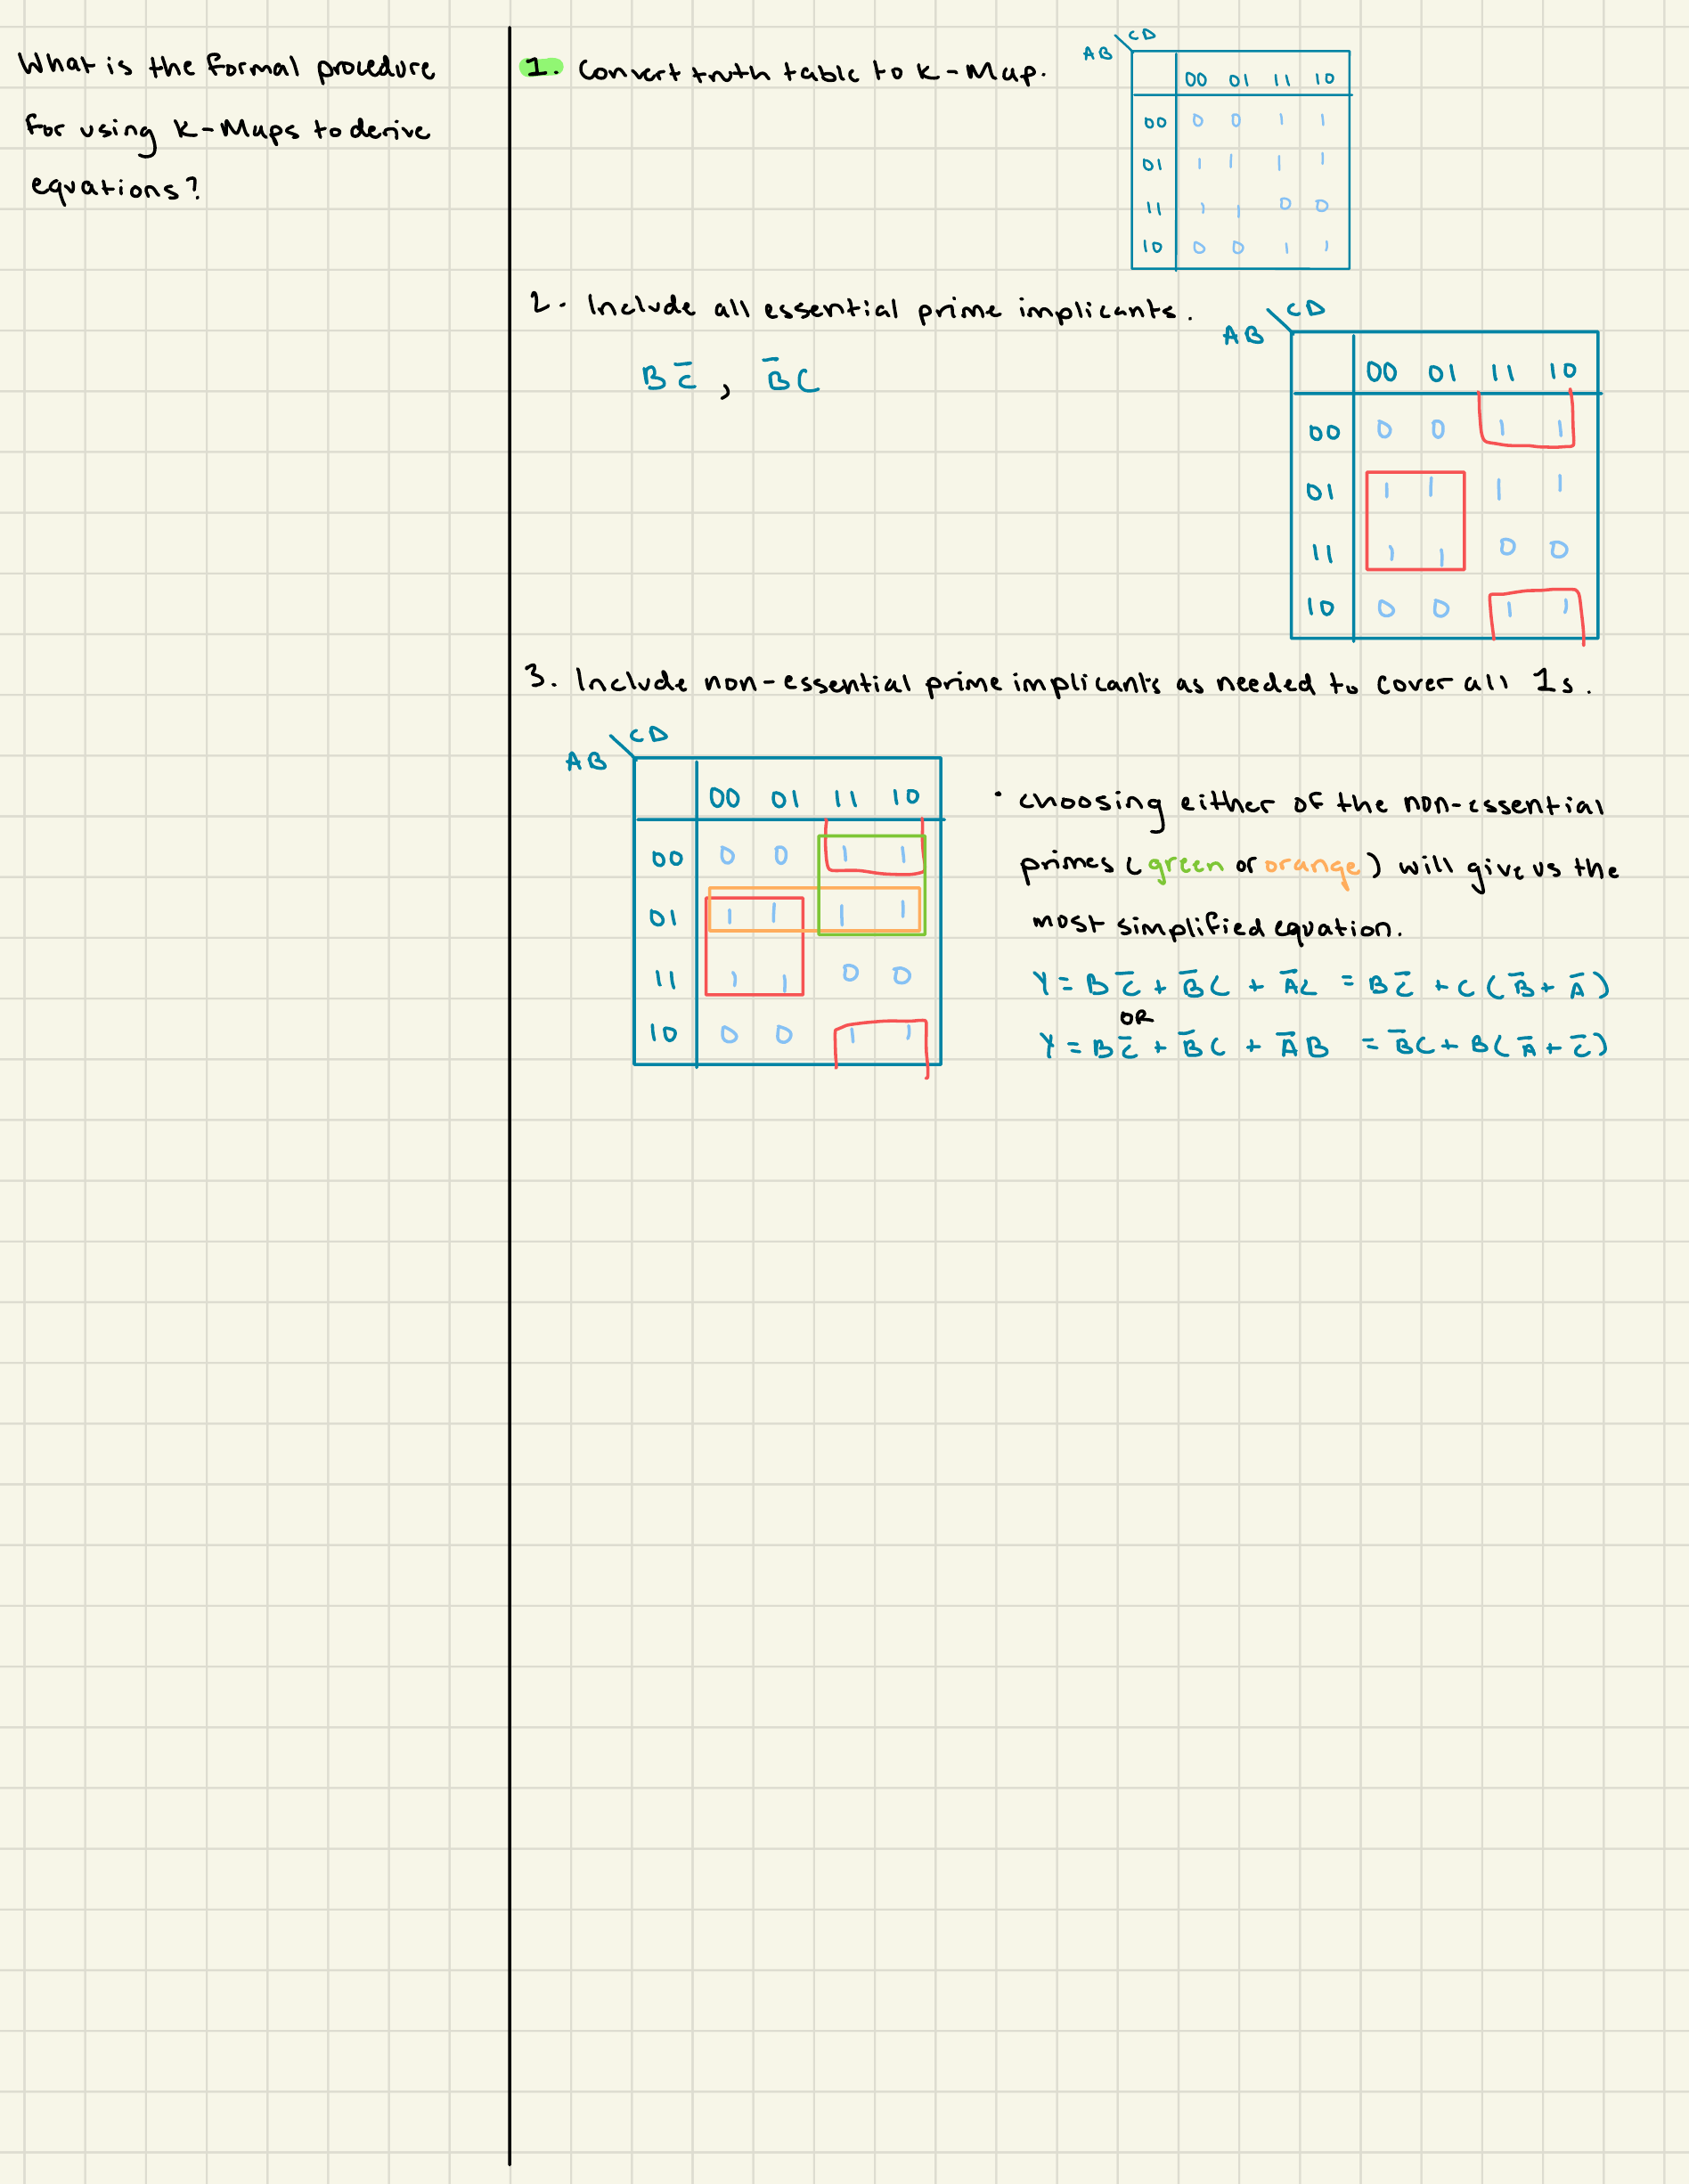 What is the formal procedure
for using K-Maps to derive
equations?
1. Convert truth table to K-Map.
AB \ CD
00 01 11 10
00 0 0 1 1
01 1 1 1 1
11 1 1 0 0
10 0 0 1 1
2. Include all essential prime implicants.
BC̅ , B̅C
AB \ CD
00 01 11 10
00 0 0 1 1
01 1 1 1 1
11 1 1 0 0
10 0 0 1 1
3. Include non-essential prime implicants as needed to cover all 1s.
AB \ CD
00 01 11 10
00 0 0 1 1
01 1 1 1 1
11 1 1 0 0
10 0 0 1 1
· choosing either of the non-essential
primes (green or orange) will give us the
most simplified equation.
Y = BC̅ + B̅C + A̅C = BC̅ + C(B̅ + A̅)
OR
Y = BC̅ + B̅C + A̅B = B̅C + B(A̅ + C̅)